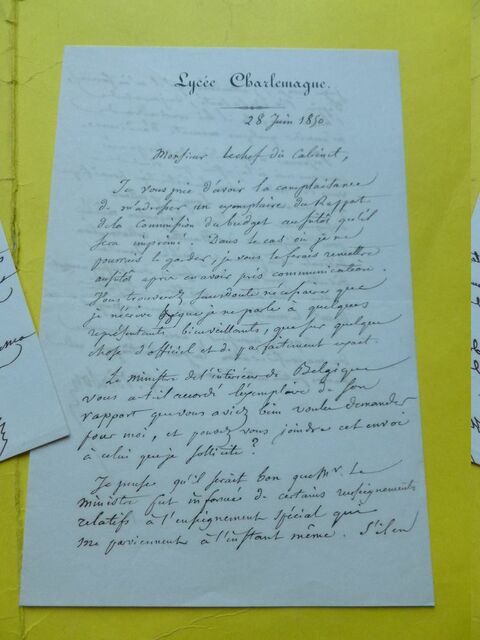 Lycée Charlemagne.
28 Juin 1850
Monsieur Le chef du Cabinet,
Je vous prie d'avoir la complaisance
de m'adresser un exemplaire du Rapport
de la Commission du budget aussitôt qu'il
sera imprimé. Dans le cas où je ne
pourrais le garder, je vous le ferais remettre
aussitôt après en avoir pris communication.
Vous trouverez sans doute nécessaire que
je n'écrive que je ne parle à quelques
représentants bienveillants, que sur quelque
chose d'officiel et de parfaitement exact.
Le ministre de l'intérieur de Belgique
vous a-t-il accordé l'exemplaire de son
rapport que vous aviez bien voulu demander
pour moi, et pouvez vous joindre cet envoi
à celui que je sollicite ?
Je pense qu'il serait bon que Mr. Le
Ministre fut informé de certains renseignements
relatifs à l'enseignement spécial qui
me parviennent à l'instant même. S'il en